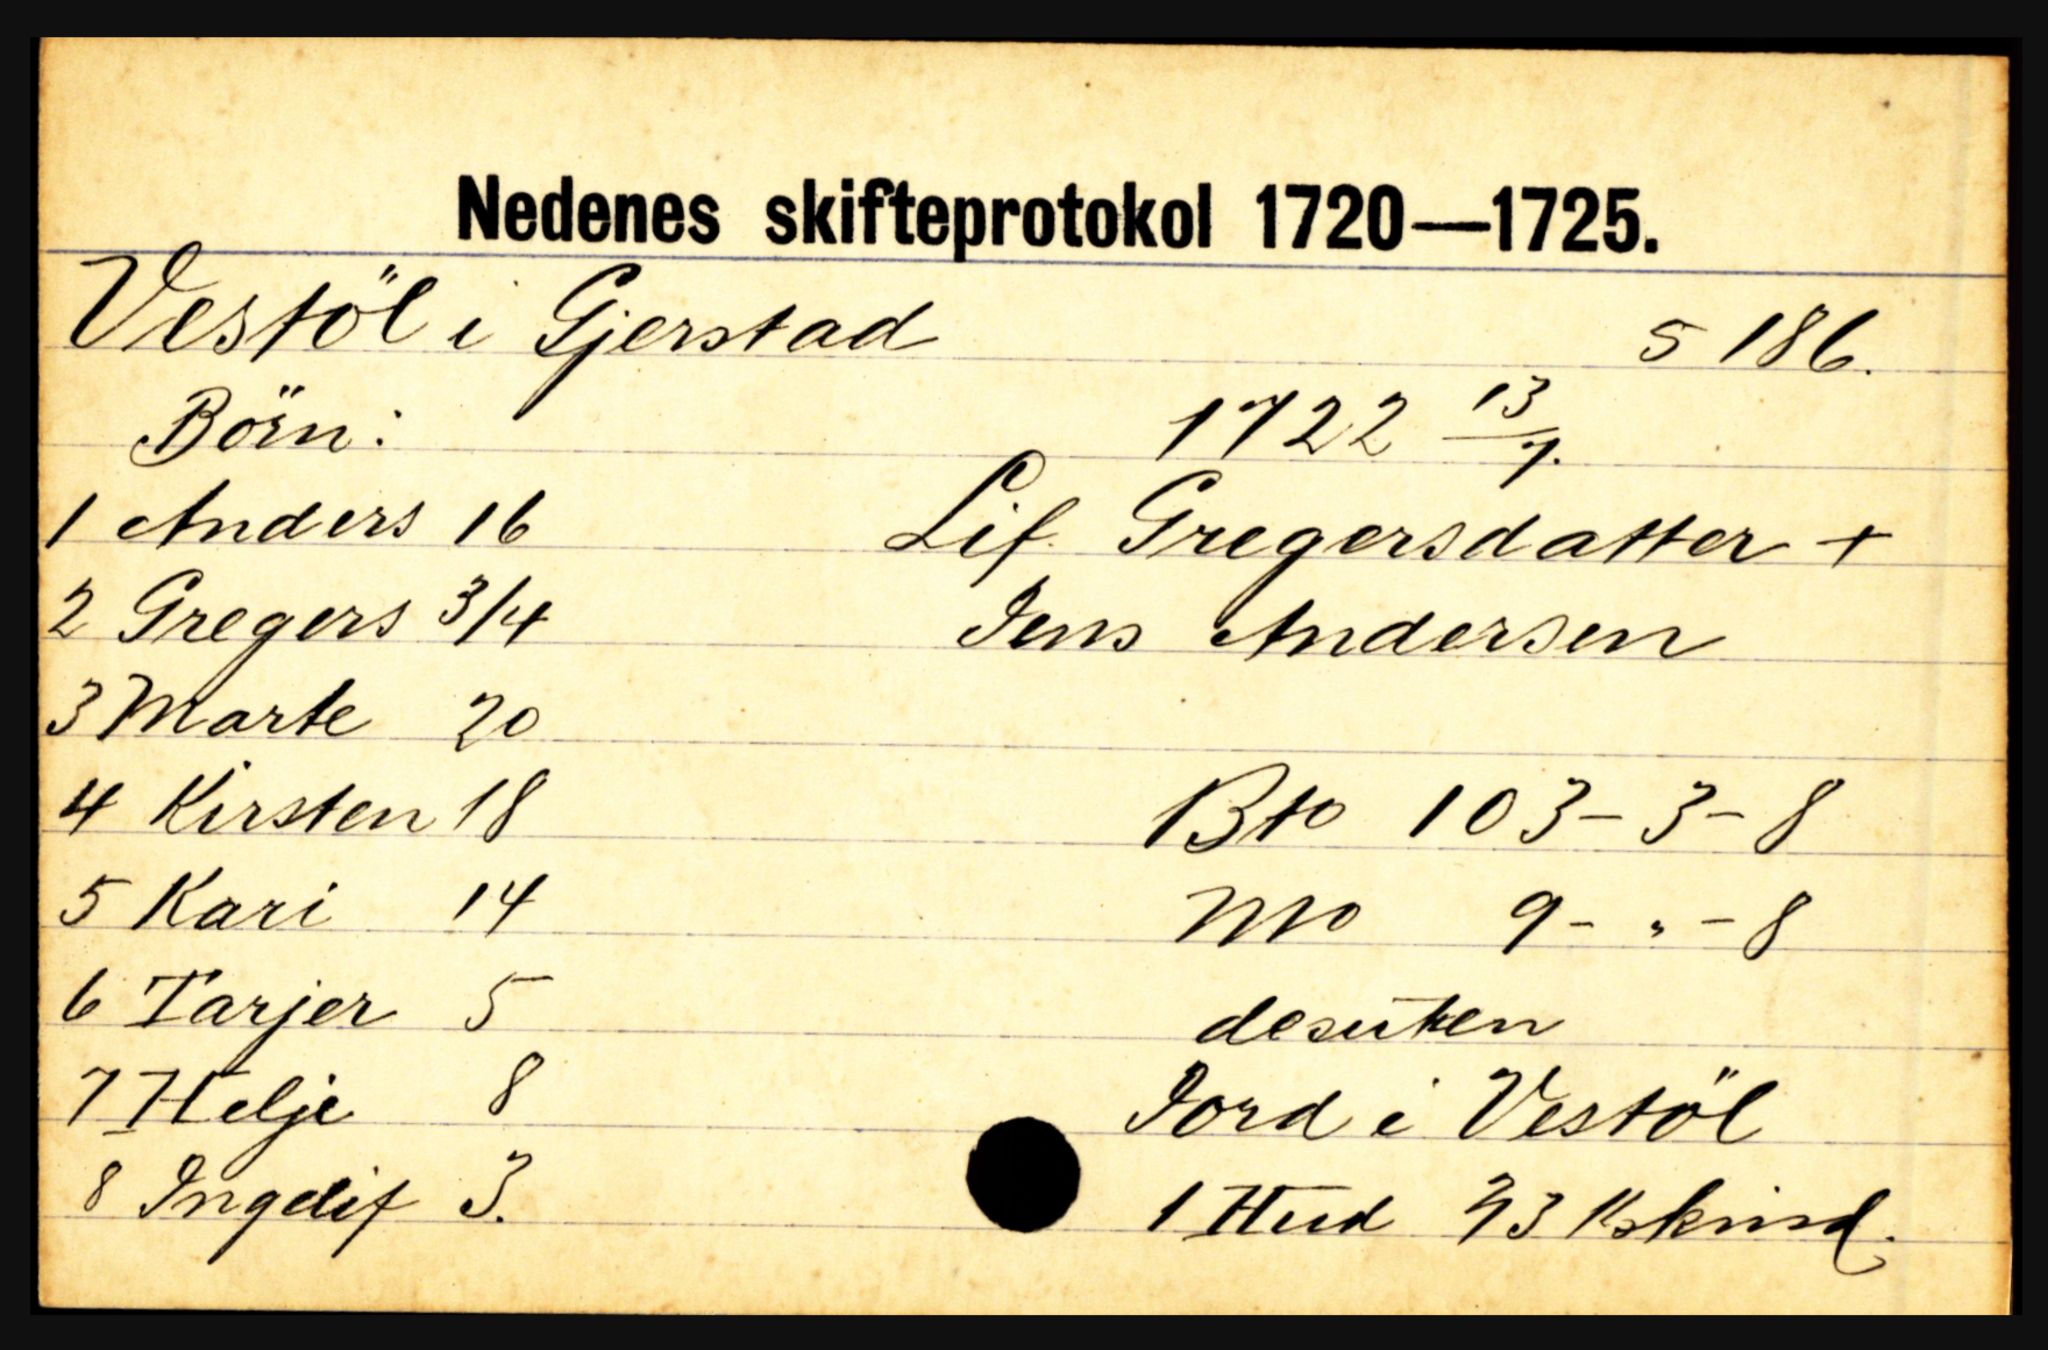 Nedenes skifteprotokol 1720—1725.
Vestöl i Gjerstad S 186.
Börn: 1722 13/7.
1 Anders 16 Lif Gregersdatter +
2 Gregers 3/4 Jens Andersen
3 Marte 20
4 Kirsten 18 Bto 103-3-8
5 Kari 14 Nto 9-"-8
6 Tarjer 5 desuten
7 Helje 8 Jord i Vestöl
8 Ingelif 3. 1 Hud Kskind.